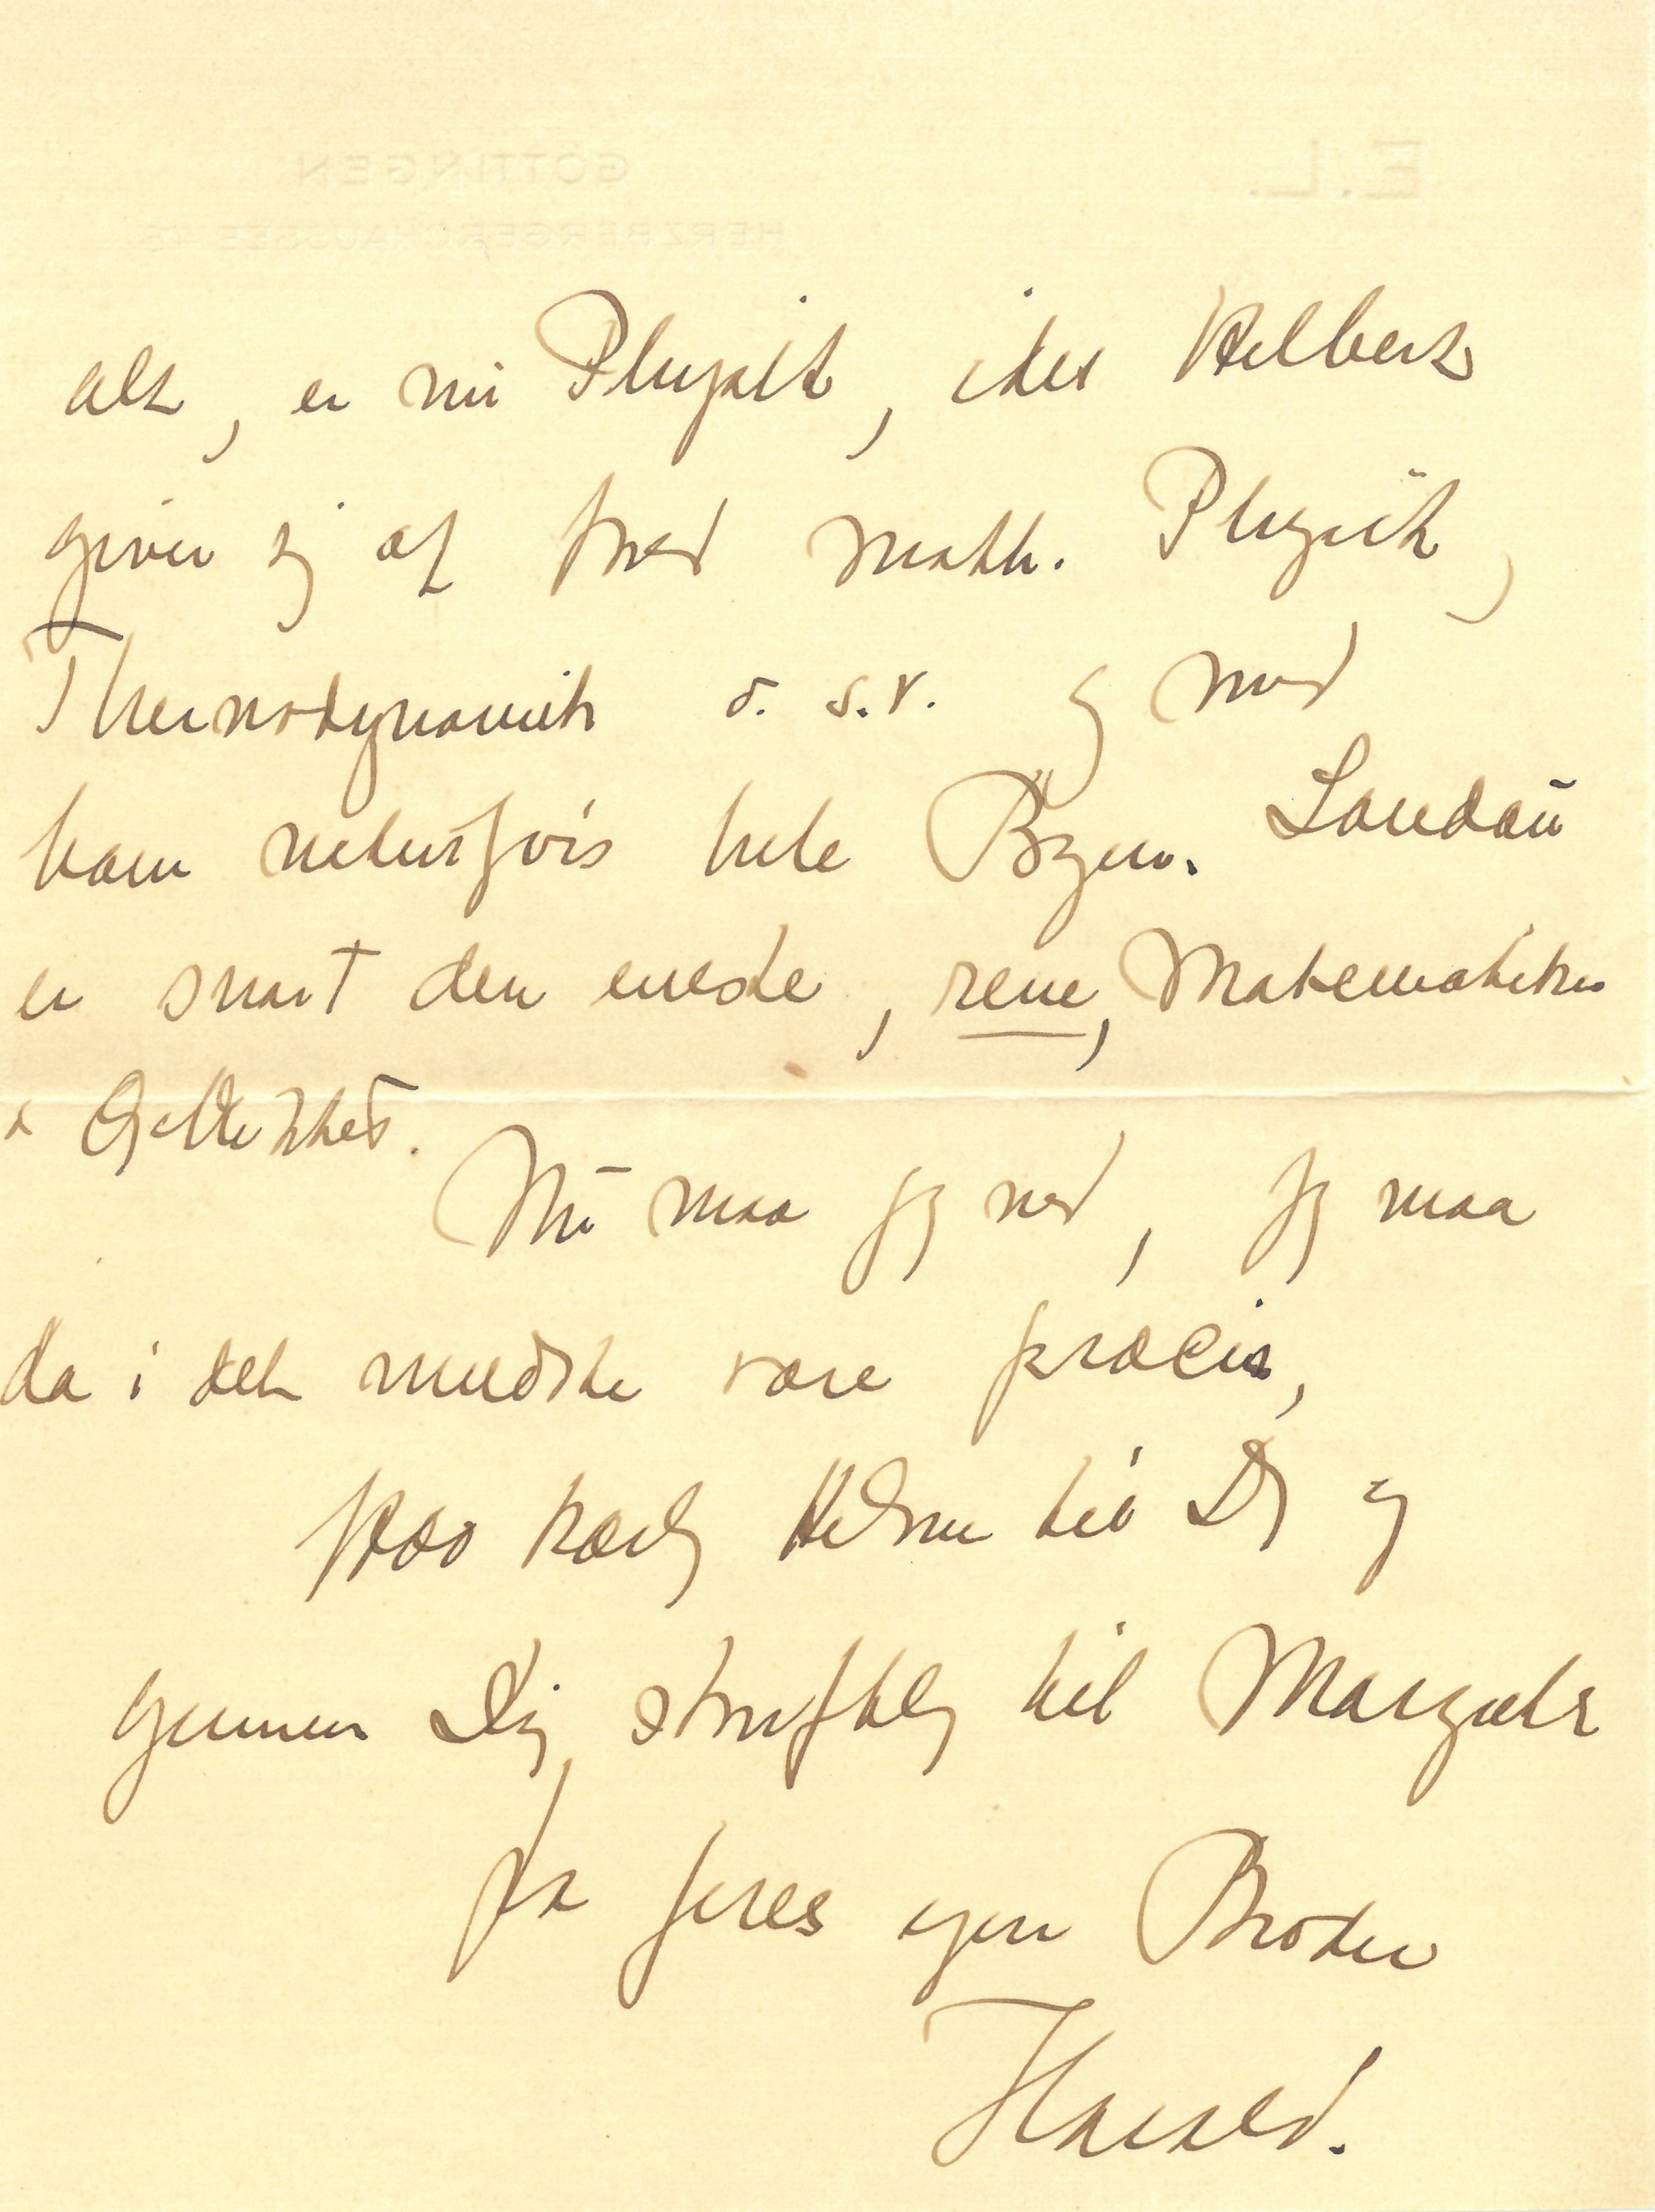 E. L.
GÖTTINGEN
HERZBERGERCHAUSSEE 48
alt, er nu Physik, idet Hilbert
giver sig af med math. Physik,
Thermodynamik o. s. v. og med
ham naturligvis hele Byen. Landau
er snart den eneste, rene, Matematiker
Nu maa jeg ned, jeg maa
da i det mindste være præcis,
kærlig Hilsen til Dig og
gennem Dig til Margrethe
fra Jeres egen Broder
Harald.